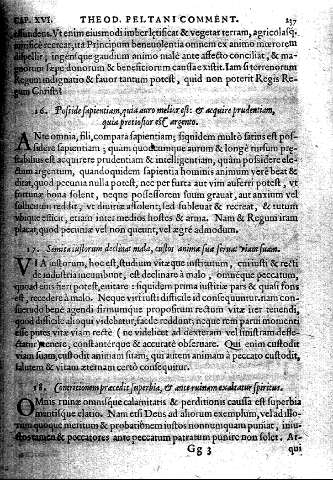 CAP. XVI. THEOD. PELTANI COMMENT. 237
effundens. Vt enim eiusmodi imber lætificat & vegetat terram, agricolasq́.
recreat, ita Principum beneuolentia omnem ex animo mœrorem
depellit; ingensque gaudium animo malè ante affecto conciliat, & ma-
gnorum sæpe donorum & beneficiorum causa existit. Iam si terrenorum
Regum indignatio & fauor tantum potest, quid non poterit Regis Re-
gum Christi?
16. Posside sapientiam, quia auro melior est: & acquire prudentiam,
quia pretiosior est argento.
ANte omnia, fili, compara sapientiam; siquidem multò satius est pos-
sidere sapientiam; quàm quodcumque aurum & longè rursum præ-
stabilius est acquirere prudentiam & intelligentiam, quàm possidere ele-
ctum argentum, quandoquidem sapientia hominis animum verè beat &
ditat, quod pecunia nulla potest, nec per furta aut vim auferri potest, vt
fortunæ bona solent, neque possessorem suum grauat, aut anxium vel
sollicitum reddit, vt diuitiæ assolent, sed subleuat & recreat, & tutum
vbique efficit, etiam inter medios hostes & arma. Nam & Regum iram
placat, quod pecuniæ vel non queunt, vel ægrè admodum.
17. Semita iustorum declinat mala, custos animæ suæ seruat viam suam.
VIA iustorum, hoc est, studium vitæque institutum, cui iusti & recti
de industria incumbunt, est declinare à malo, omneque peccatum,
quoad eius fieri potest, euitare: siquidem prima iustitiæ pars & quasi fons
est, recedere à malo. Neque viri iusti difficile id consequuntur. nam con-
seruando bene agendi firmumque propositum rectum vitæ iter tenendi,
quod difficile alioqui videbatur, facile reddunt; neque rem parui momenti
esse putes vitæ viam rectè (ne videlicet ad dexteram vel sinistram defle-
ctatur) tenere, constanterque & accuratè obseruare. Qui enim custodit
viam suam, custodit animam suam; qui autem animam à peccato custodit,
salutem & vitam æternam certò consequitur.
18. Contritionem præcedit superbia, & ante ruinam exaltatur spiritus.
OMnis ruinæ omnisque calamitatis & perditionis causa est superbia
omnisque elatio. Nam etsi Deus ad aliorum exemplum, vel ad illo-
rum quoque meritum & probationem iustos nonnunquam puniat, iniu-
stos tamen & peccatores ante peccatum patratum punire non solet. At-
Gg 3 qui